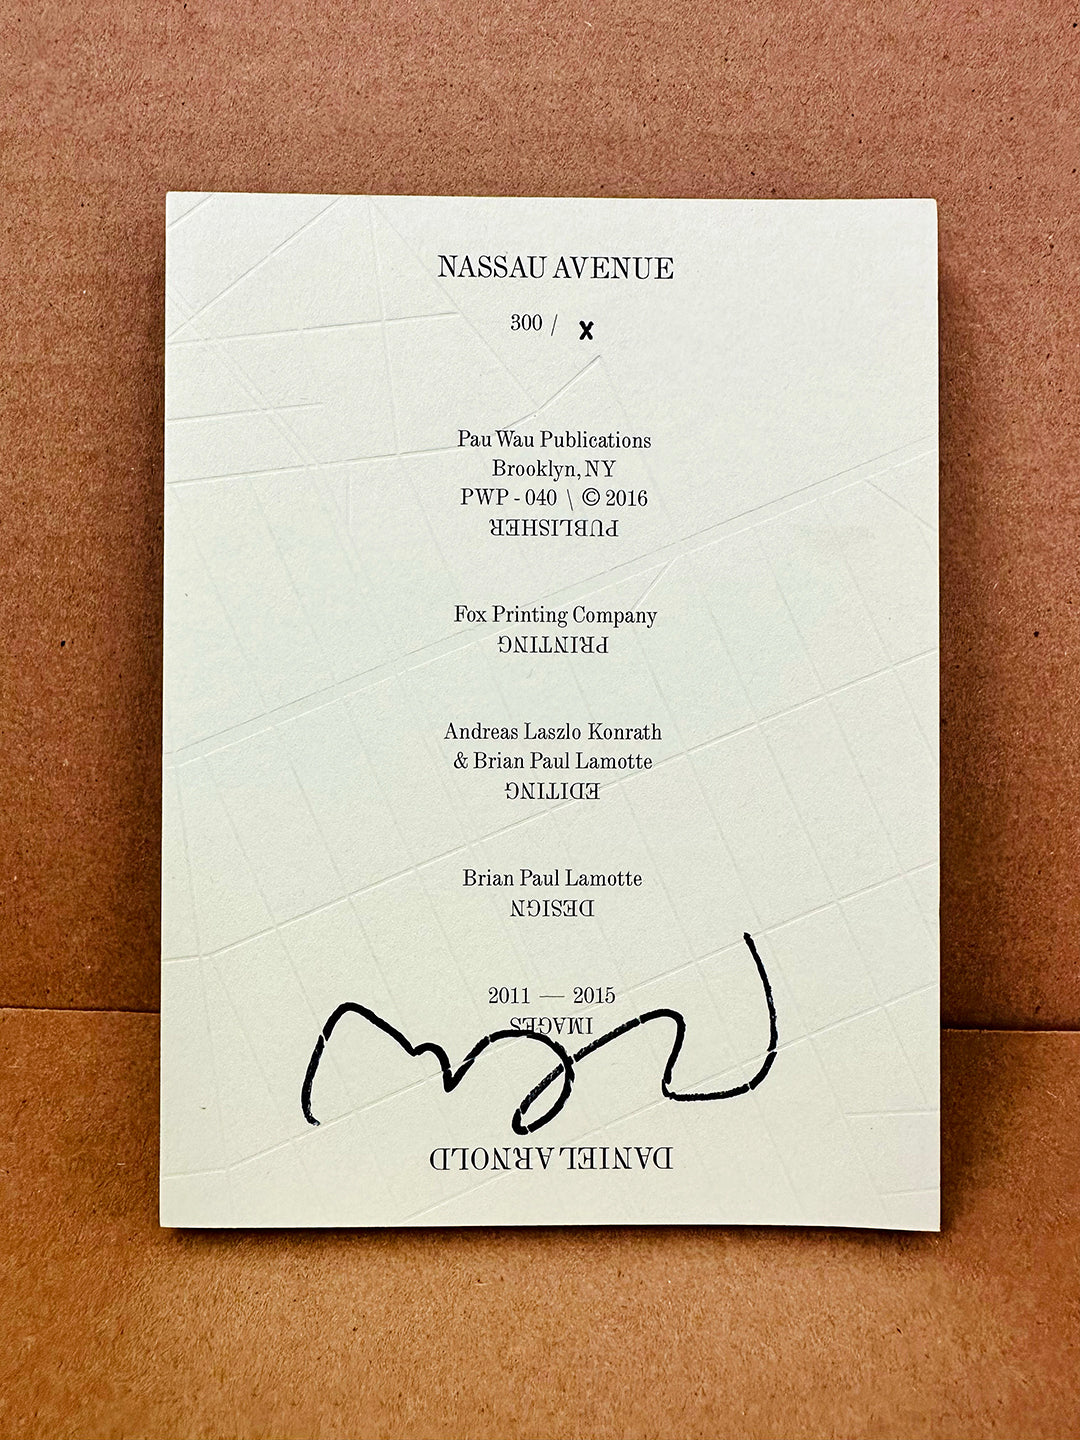 NASSAU AVENUE
300 / X
Pau Wau Publications
Brooklyn, NY
PWP - 040 \ © 2016
PUBLISHER
Fox Printing Company
PRINTING
Andreas Laszlo Konrath
& Brian Paul Lamotte
EDITING
Brian Paul Lamotte
DESIGN
2011 — 2015
IMAGES
DANIEL ARNOLD